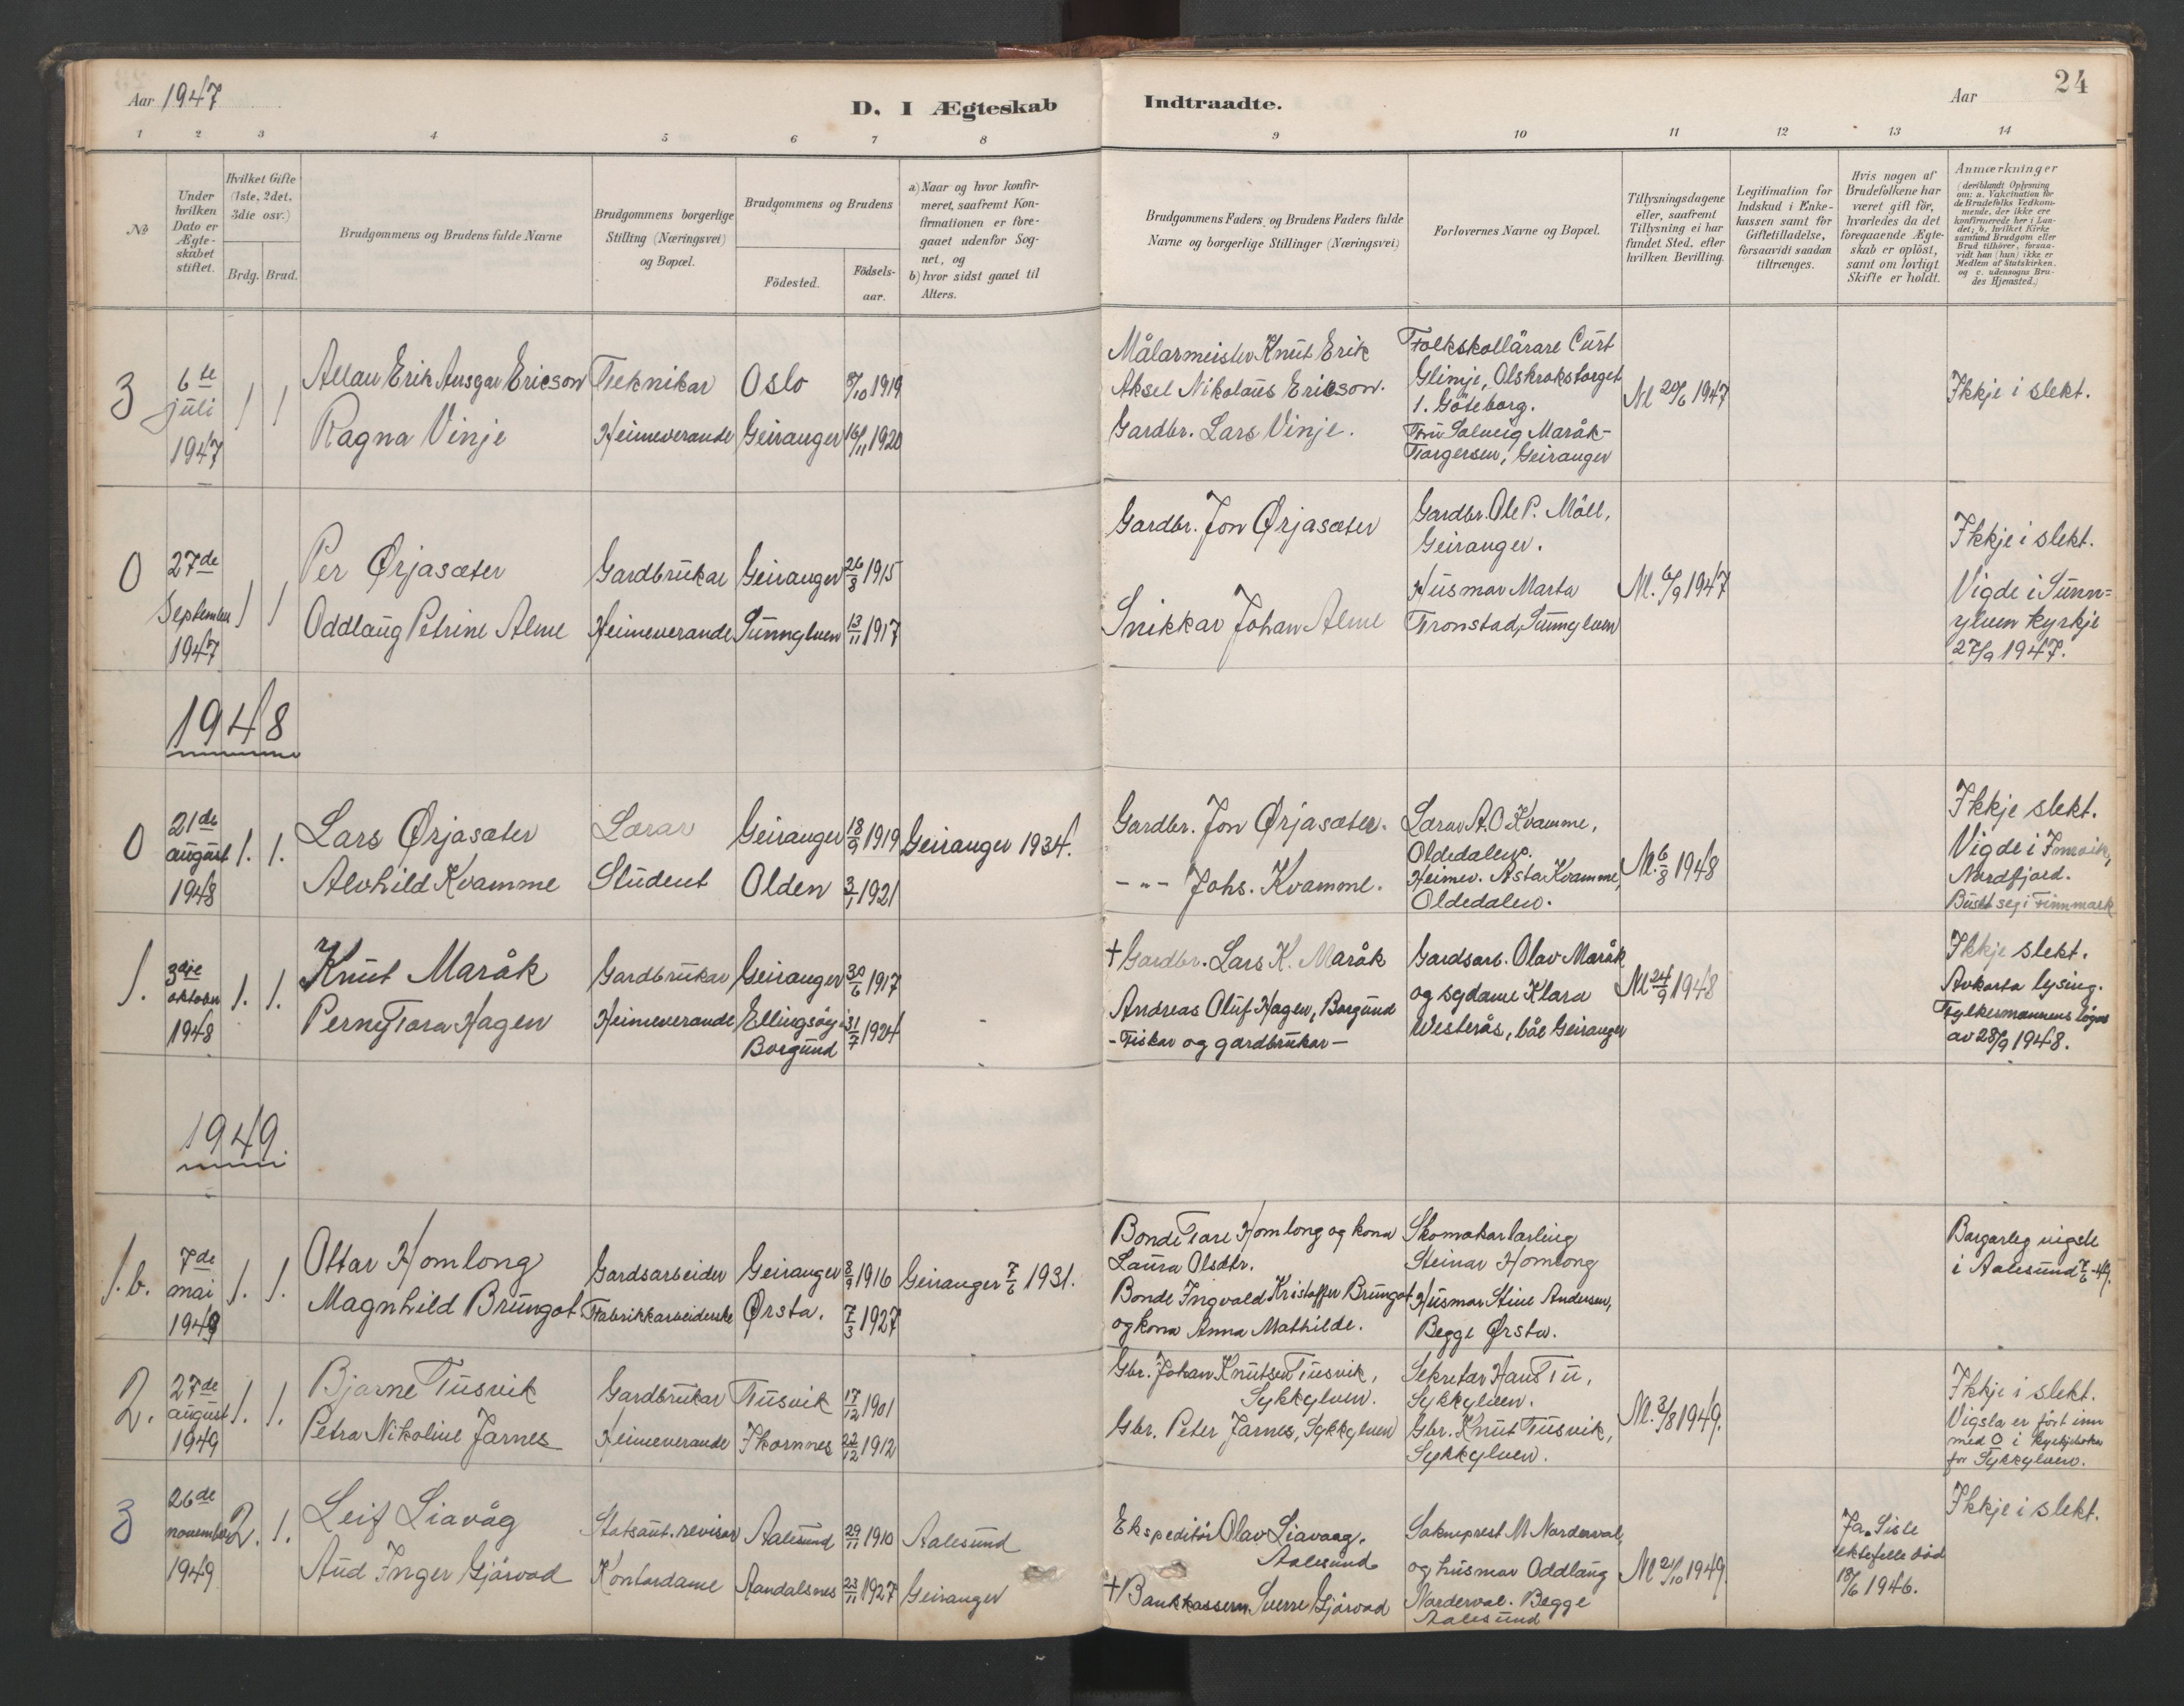 Aar 1947
D. I Ægteskab
Indtraadte.
Aar
24
1 2 3 4 5 6 7 8 9 10 11 12 13 14
No
Under hvilken Dato er Ægteskabet stiftet.
Hvilket Gifte (1ste, 2det, 3die osv.)
Brdg. Brud.
Brudgommens og Brudens fulde Navne
Brudgommens borgerlige Stilling (Næringsvei) og Bopæl.
Brudgommens og Brudens
Födested.
Födsels-aar.
a) Naar og hvor konfir-
meret, saafremt Kon-
firmationen er fore-
gaaet udenfor Sog-
net, og
b) hvor sidst gaaet til
Alters.
Brudgommens Faders og Brudens Faders fulde
Navne og borgerlige Stillinger (Næringsvei)
Forlovernes Navne og Bopæl.
Tillysningsdagene
eller, saafremt
Tillysning ei har
fundet Sted, efter
hvilken Bevilling.
Legitimation for
Indskud i Enke-
kassen samt for
Giftetilladelse,
forsaavidt saadan
tiltrænges.
Hvis nogen af
Brudefolkene har
været gift för,
hvorledes da det
foregaaende Ægte-
skab er oplöst,
samt om lovligt
Skifte er holdt.
Anmærkninger
(deriblandt Oplysning
om: a. Vakcination for
de Brudefolks Vedkom-
mende, der ikke ere
konfirmerede her i Lan-
det; b. hvilket Kirke
samfund Brudgom eller
Brud tilhörer, forsaa-
vidt han (hun) ikke er
Medlem af Statskirken.
og c. udensogns Bru-
des Hjemsted.)
3
6te
juli
1947
1 1
Allan Erik Ansgar Ericson
Ragna Vinje
Teknikar
Heimeverande
Oslo
Geiranger
8/10 1919
16/11 1920
Målarmeister Knut Erik
Aksel Nikolaus Ericson.
Gardbr. Lars Vinje.
Folkskollärare Curt
Glimje, Olskrokstorget
1. Göteborg.
Fru Solveig Maråk-
Torgersen, Geiranger
M 20/6 1947
Ikkje i slekt.
0
27de
September
1947
1 1
Per Ørjasæter
Oddlaug Petrine Alme
Gardbrukar
Heimeverande
Geiranger
Sunnylven
26/8 1915
13/11 1917
Gardbr. Jon Ørjasæter
Snikkar Johan Alme
Gardbr. Ole P. Möll,
Geiranger.
Husmor Marta
Tronstad, Sunnylven
M. 6/9 1947
Ikkje i slekt.
Vigde i Sunn=
ylven kyrkje
27/9 1947.
1948
0
21de
august
1948
1. 1.
Lars Ørjasæter
Alvhild Kvamme
Lærar
Student
Geiranger
Olden
18/9 1919
3/1 1921
Geiranger 1934.
Gardbr. Jon Ørjasæter.
-"- Johs. Kvamme.
Lærar A. O. Kvamme,
Oldedalen.
Heimev. Asta Kvamme,
Oldedalen.
M. 6/8 1948
Ikkje slekt.
Vigde i Innvik,
Nordfjord.
Buset seg i Finnmark
1.
3dje
oktober
1948
1. 1.
Knut Maråk
Perny Tora Hagen
Gardbrukar
Heimeverande
Geiranger
Ellingsöy i
Borgund
30/6 1917
31/7 1924
-
-
† Gardbr. Lars K. Maråk
Andreas Oluf Hagen, Borgund
- Fiskar og gardbrukar -
Gardsarb. Olav Maråk
og sydame Klara
Westerås, båe Geiranger
M 24/9 1948
Ikkje slekt.
Avkorta lysing.
Fylkesmannens løyve
av 28/9 1948.
1949.
1.b.
7de
mai
1949
1. 1.
Ottar Homlong
Magnhild Brungot
Gardsarbeider
Fabrikkarbeiderske
Geiranger
Ørsta.
8/9 1916
7/3 1927
Geiranger 7/6 1931.
Bonde Tore Homlong og kona
Laura Olsdtr.
Bonde Ingvald Kristoffer Brungot
og kona Anna Mathilde.
Skomakarlærling
Steinar Homlong
Husmor Stine Andersen,
Begge Ørsta.
Borgarleg vigsle
i Aalesund
2.
27de
august
1949
1. 1.
Bjarne Tusvik
Petra Nikoline Jarnes
Gardbrukar
Heimeverande
Tusvik
Ikornnes
17/12 1901
22/12 1912
Gbr. Johan Knutsen Tusvik,
Sykkylven.
Gbr. Peter Jarnes, Sykkylven
Sekretær Hans Tu,
Sykkylven.
Gbr. Knut Tusvik,
Sykkylven.
M. 3/8 1949.
Ikkje i slekt.
Vigsla er fört inn
med 0 i kyrkjeboka
for Sykkylven.
3
26de
november
1949
2. 1.
Leif Liavåg
Aud Inger Gjörvad
Statsaut. revisor
Kontordame
Aalesund
Aandalsnes
29/11 1910
23/11 1927
Aalesund
Geiranger
Ekspeditör Olav Liavaag.
Aalesund
† Bankkasserer Sverre Gjörvad
Sokneprest M Norderval,
og husmor Oddlaug
Norderval. Begge
Aalesund
M 21/10 1949.
Ja. Siste
ektefelle död
18/6 1946.
Ikkje i slekt.